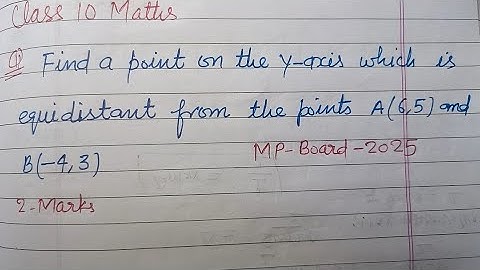 Class 10 Maths
Q Find a point on the y-axis which is
equidistant from the points A(6,5) and
B(-4,3)
MP-Board-2025
2-Marks